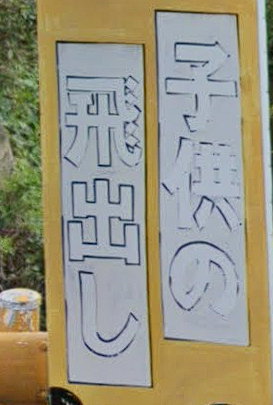 子供の
飛出し